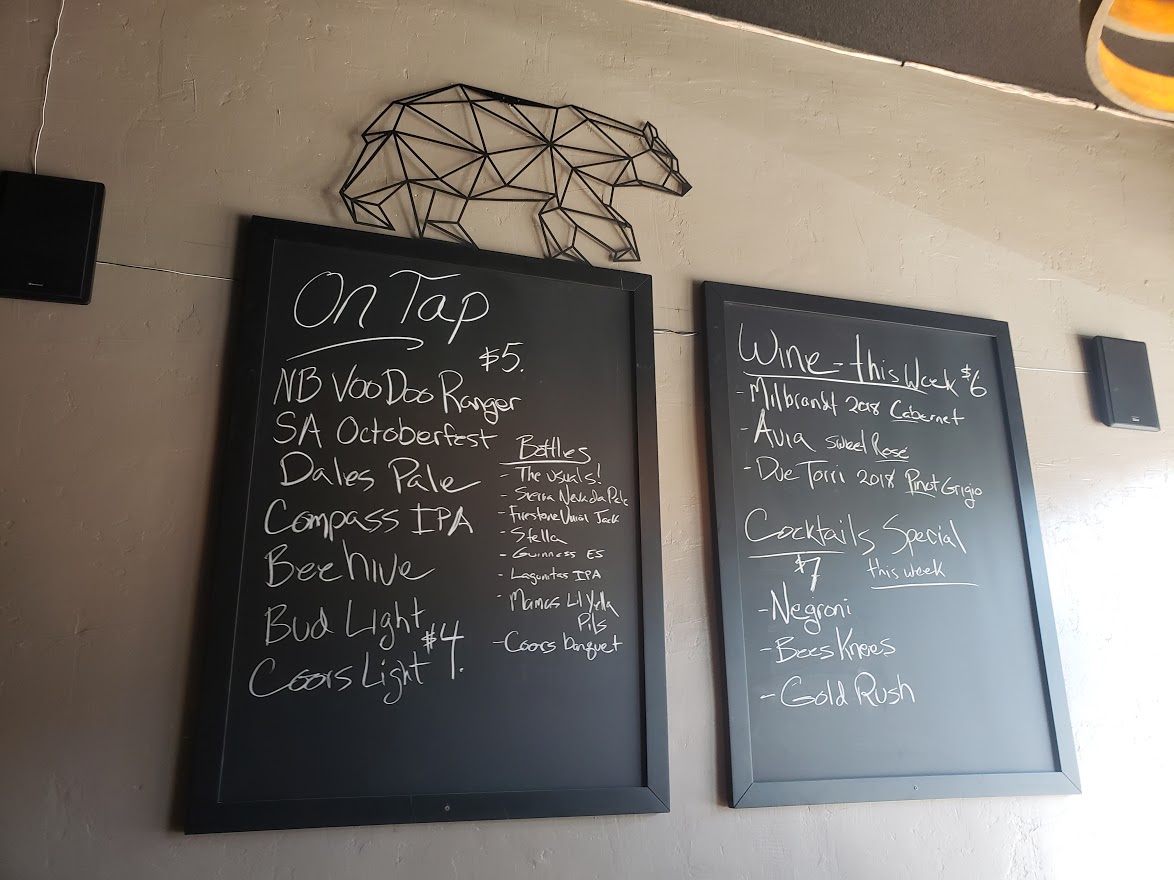 On Tap
$5.
NB VooDoo Ranger
SA Octoberfest
Dales Pale
Compass IPA
Beehive
Bud Light
$4.
Coors Light
Bottles
- The usuals!
- Sierra Nevada Pale
- Firestone Union Jack
- Stella
- Guinness ES
- Lagunitas IPA
- Mamas Lil Yella
Pils
- Coors banquet
Wine - this Week $6
- Milbrandt 2018 Cabernet
- Avia sweet Rosé
- Due Torri 2018 Pinot Grigio
Cocktails Special
$7 this week
- Negroni
- Bees Knees
- Gold Rush